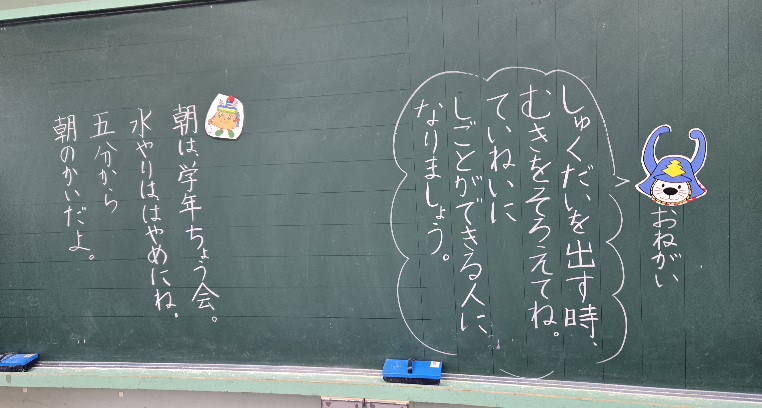 おねがい
しゅくだいを出す時、
むきをそろえてね。
ていねいに
しごとができる人に
なりましょう。
朝は、学年ちょう会。
水やりは、はやめにね。
五分から
朝のかいだよ。